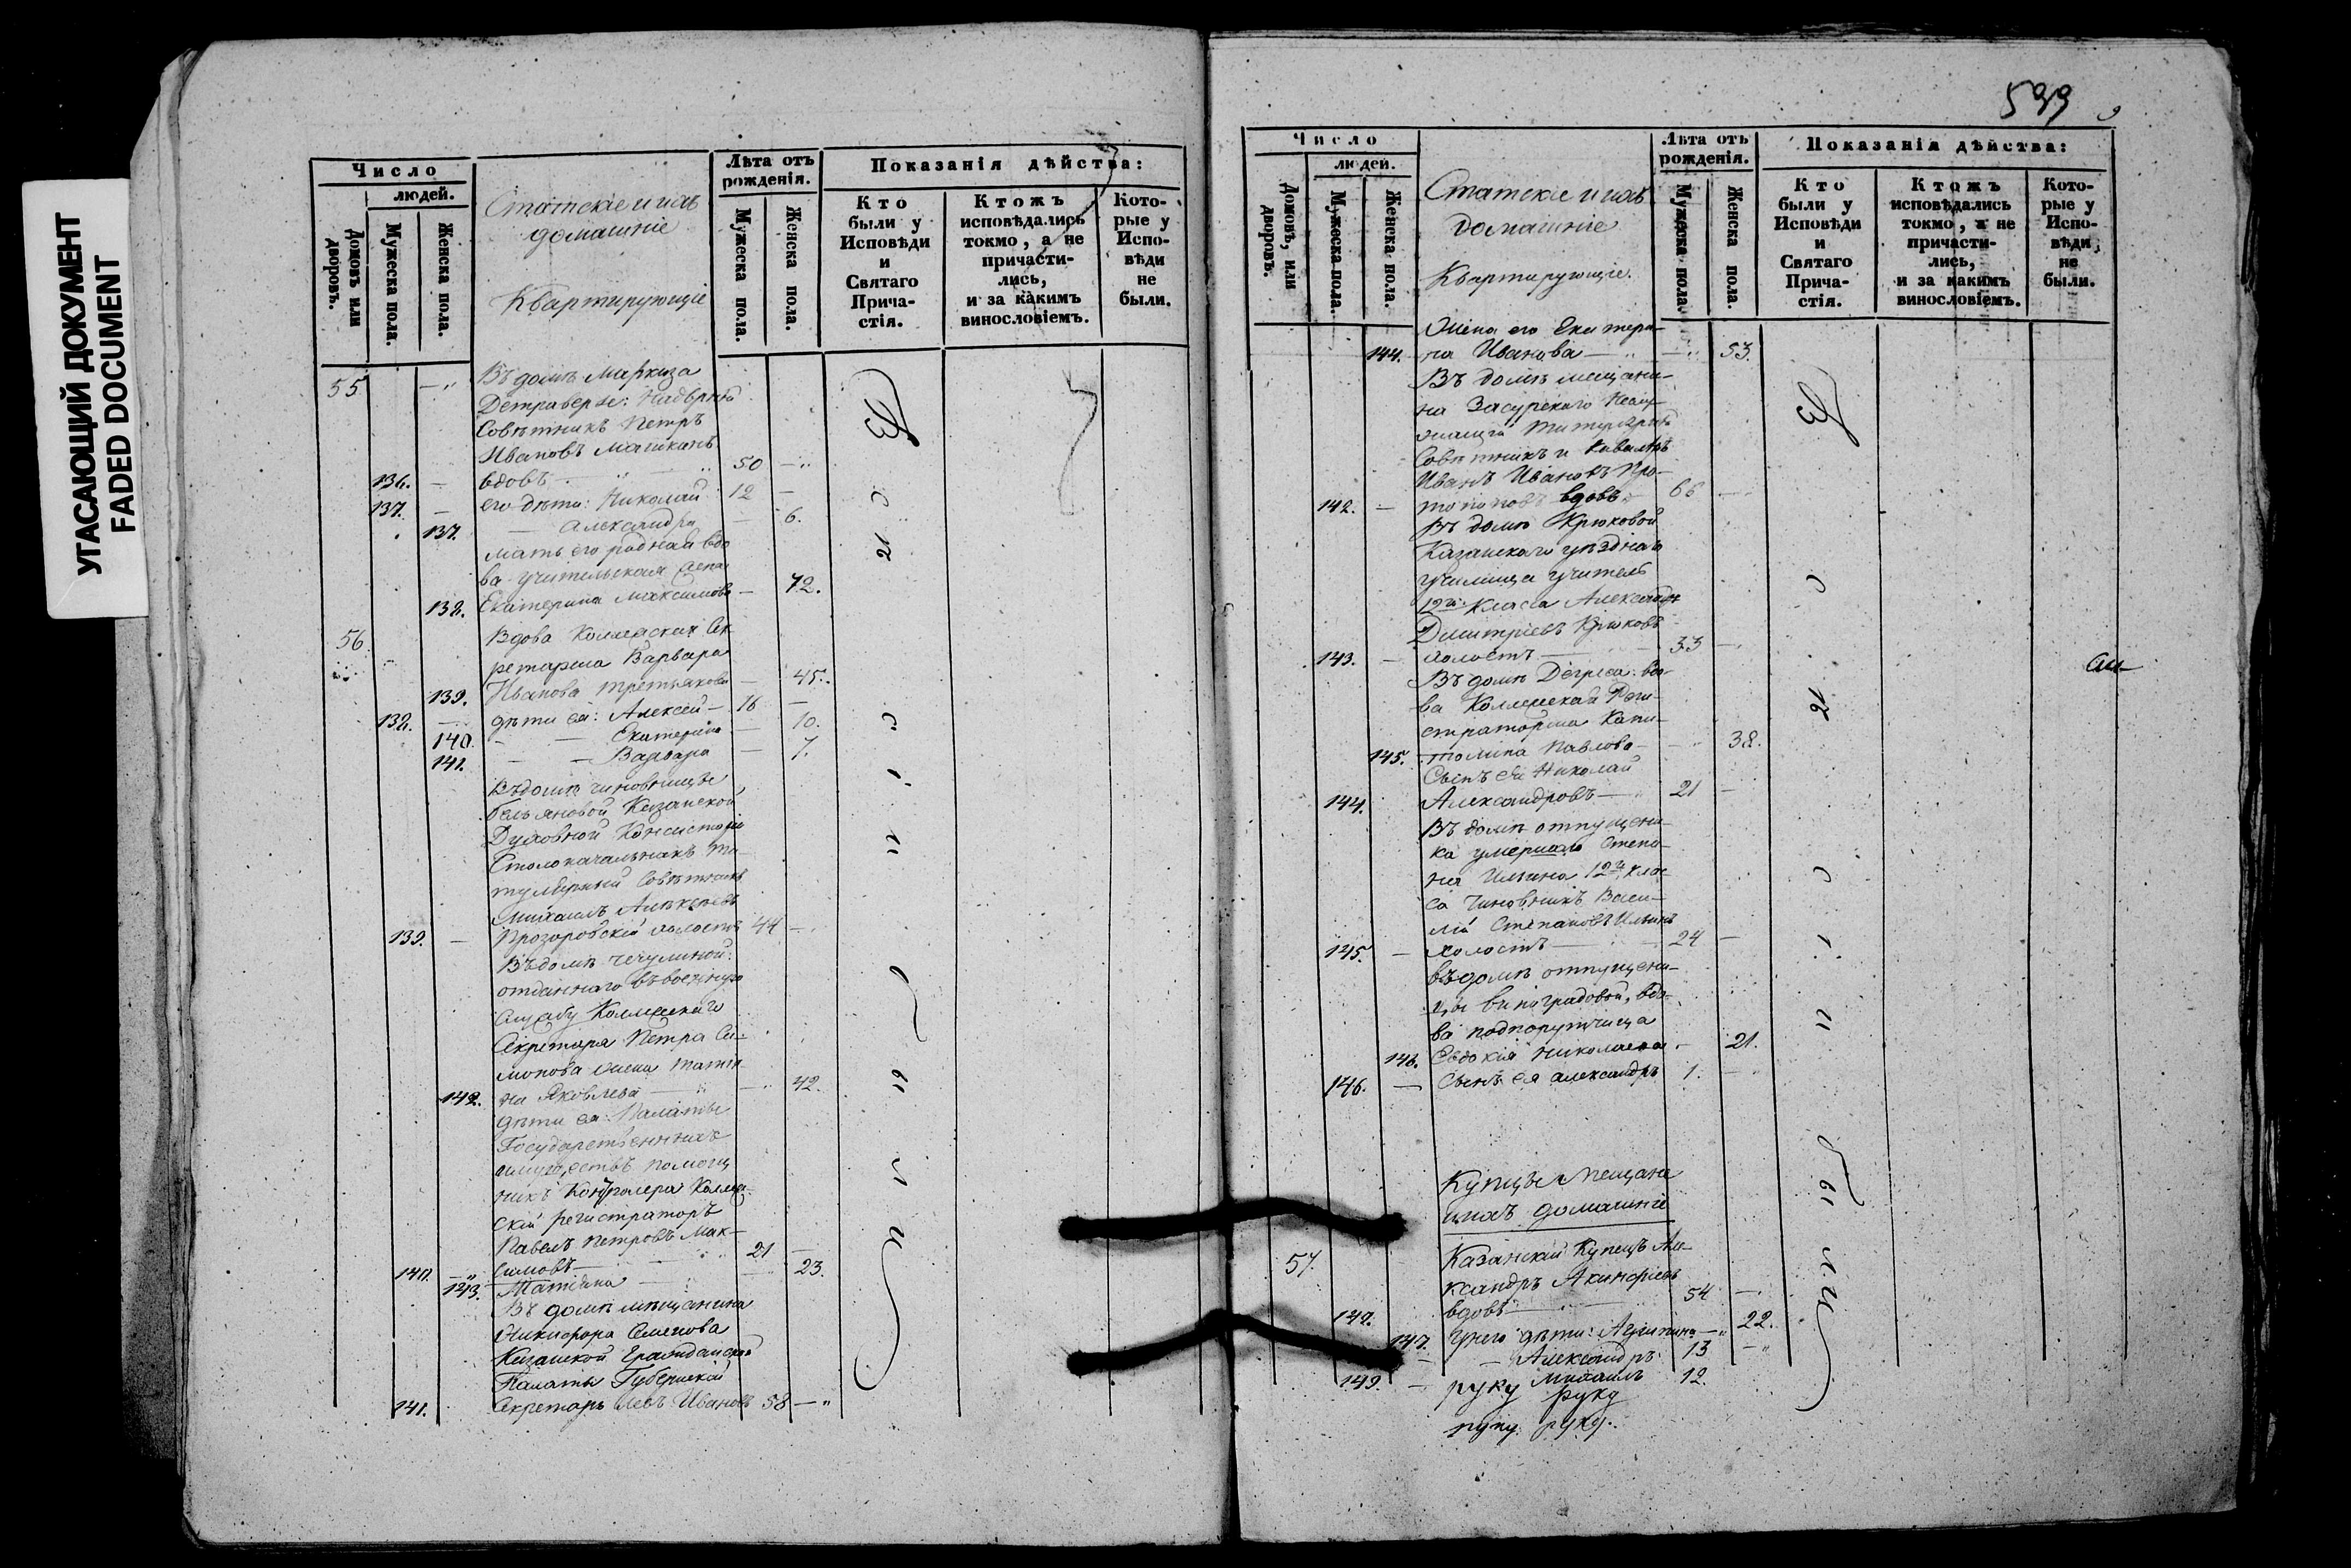 УГАСАЮЩИЙ ДОКУМЕНТ
FADED DOCUMENT
Число
людей.
Домовъ или дворовъ.
Мужеска пола.
Женска пола.
Статскіе и ихъ
домашніе
Квартирующіе
Лѣта отъ рожденія.
Мужеска пола.
Женска пола.
Показанія дѣйства:
Кто были у Исповѣди и Святаго Прича-стія.
Ктожъ исповѣдались токмо, а не причасти-лись, и за какимъ винословіемъ.
Кото-рые у Испо-вѣди не были.
55 Въ домѣ Маркиза
Детраверзе: Надворный
Совѣтникъ Петръ
Ивановъ
136. вдовъ 50
137. его дѣти: Николай 12
137. Александра 6.
мать его родная вдо
ва учительская жена
138. Екатерина Максимова 72.
56. Вдова Коллежская Сек
ретарша Варвара
139. Иванова Третьякова 45.
138. дѣти ея: Алексей 16
140. Екатерина 10.
141. Варвара 7.
Въ домѣ чиновницы
Казанской
Духовной Консисторіи
Столоначальникъ Ти
тулярный Совѣтникъ
Михаилъ Алексѣевъ
139. Прозоровскій холостъ 44
Въ домѣ Чекулиной:
отданнаго въ военную
службу Коллежскаго
Секретаря Петра Си-
монова жена Татья
142. на Яковлева 42.
дѣти ея: Палаты
Государственныхъ
имуществъ помощ
никъ Контролера Коллеж
скій регистраторъ
Павелъ Петровъ Мак-
140. симовъ 21
143. Татіана 23.
Въ домѣ мѣщанина
Никифора Семенова
Казанской Гражданской
Палаты Губернскій
141. Секретарь Левъ Ивановъ 58
599
Число
людей.
Домовъ, или дворовъ.
Мужеска пола.
Женска пола.
Статскіе и ихъ
домашніе
Квартирующіе.
Лѣта отъ рожденія.
Мужеска пола.
Женска пола.
Показанія дѣйства:
Кто были у Исповѣди и Святаго Прича-стія.
Ктожъ исповѣдались токмо, а не причасти-лись, и за какимъ винословіемъ.
Кото-рые у Испо-вѣди не были.
Жена его Екатери-
144. на Иванова 53.
Въ домѣ мещани-
на Засурскаго
Титулярный
Совѣтникъ и Кавалеръ
Иванъ Ивановъ Про-
142. топоповъ вдовъ 66
Въ домѣ Крюковой
Казанскаго уѣзднаго
училища учитель
12го класса Александръ
Дмитріевъ Крюковъ
143. холостъ 33
Въ домѣ вдо-
ва Коллежская Реги-
страторша Капи-
145. толина Павлова 38.
Сынъ ея Николай
144. Александровъ 21
Въ домѣ отпущенни-
ка умершаго Степа-
на Ильина 12го клас
са Чиновникъ Васи-
лій Степановъ Ильинъ
145. холостъ 24
въ домѣ отпущенни-
цы Виноградовой, вдо-
ва подпоручица
146. Евдокія Николаева 21.
146. Сынъ ея Александръ 1.
Купцы Мещане
и ихъ домашніе
57. Казанскій Купецъ Але
ксандръ Акинфіевъ
147. вдовъ 54
147. у него дѣти: Агрипина 22.
Александръ 13
149. Михаилъ 12.
руку руку
руку руку.